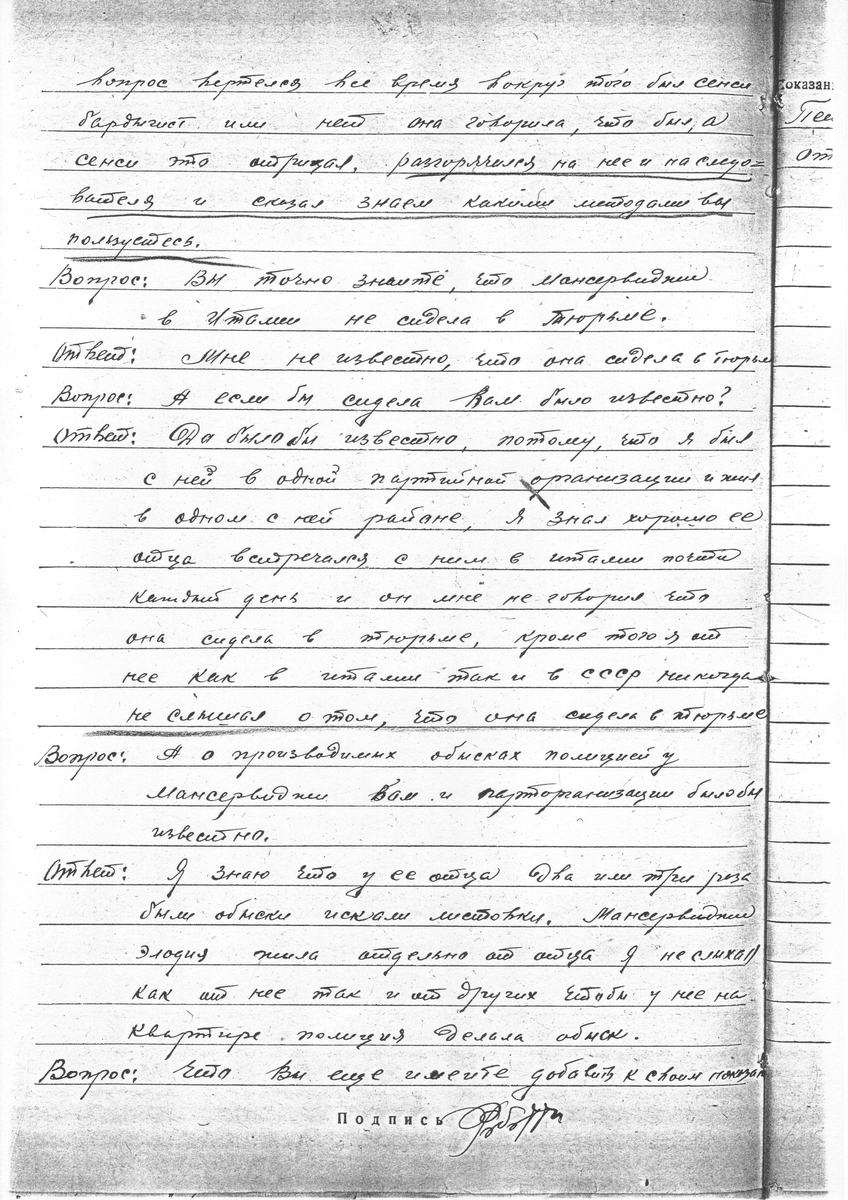 вопрос вертелся все время вокруг того был сенси
бардигист или нет она говорила, что был, а
сенси это отрицал, разгорячился на нее и на следо=
вателя и сказал знаем какими методами вы
пользуетесь.
Вопрос: Вы точно знаите, что Мансервиджи
в Италии не сидела в тюрьме.
Ответ: Мне не известно, что она сидела в тюрьм
Вопрос: А если бы сидела Вам было известно?
Ответ: Да было бы известно, потому, что я был
с ней в одной партийной организации и жил
в одном с ней районе, Я знал хорошо ее
отца встречался с ним в италии почти
каждый день и он мне не говорил что
она сидела в тюрьме, кроме того я от
нее как в италии так и в СССР никогда
не слышал о том, что она сидела в тюрьме
Вопрос: А о производимых обысках полицией у
Мансервиджи Вам и парторганизации было бы
известно.
Ответ: Я знаю что у ее отца два или три раза
были обыски искали листовки. Мансервиджи
Элодия жила отдельно от отца Я не слыхал
как от нее так и от других чтобы у нее на
квартире полиция делала обыск.
Вопрос: Что Вы еще имеете добавить к своим показан
Подпись Роботти
оказан
От